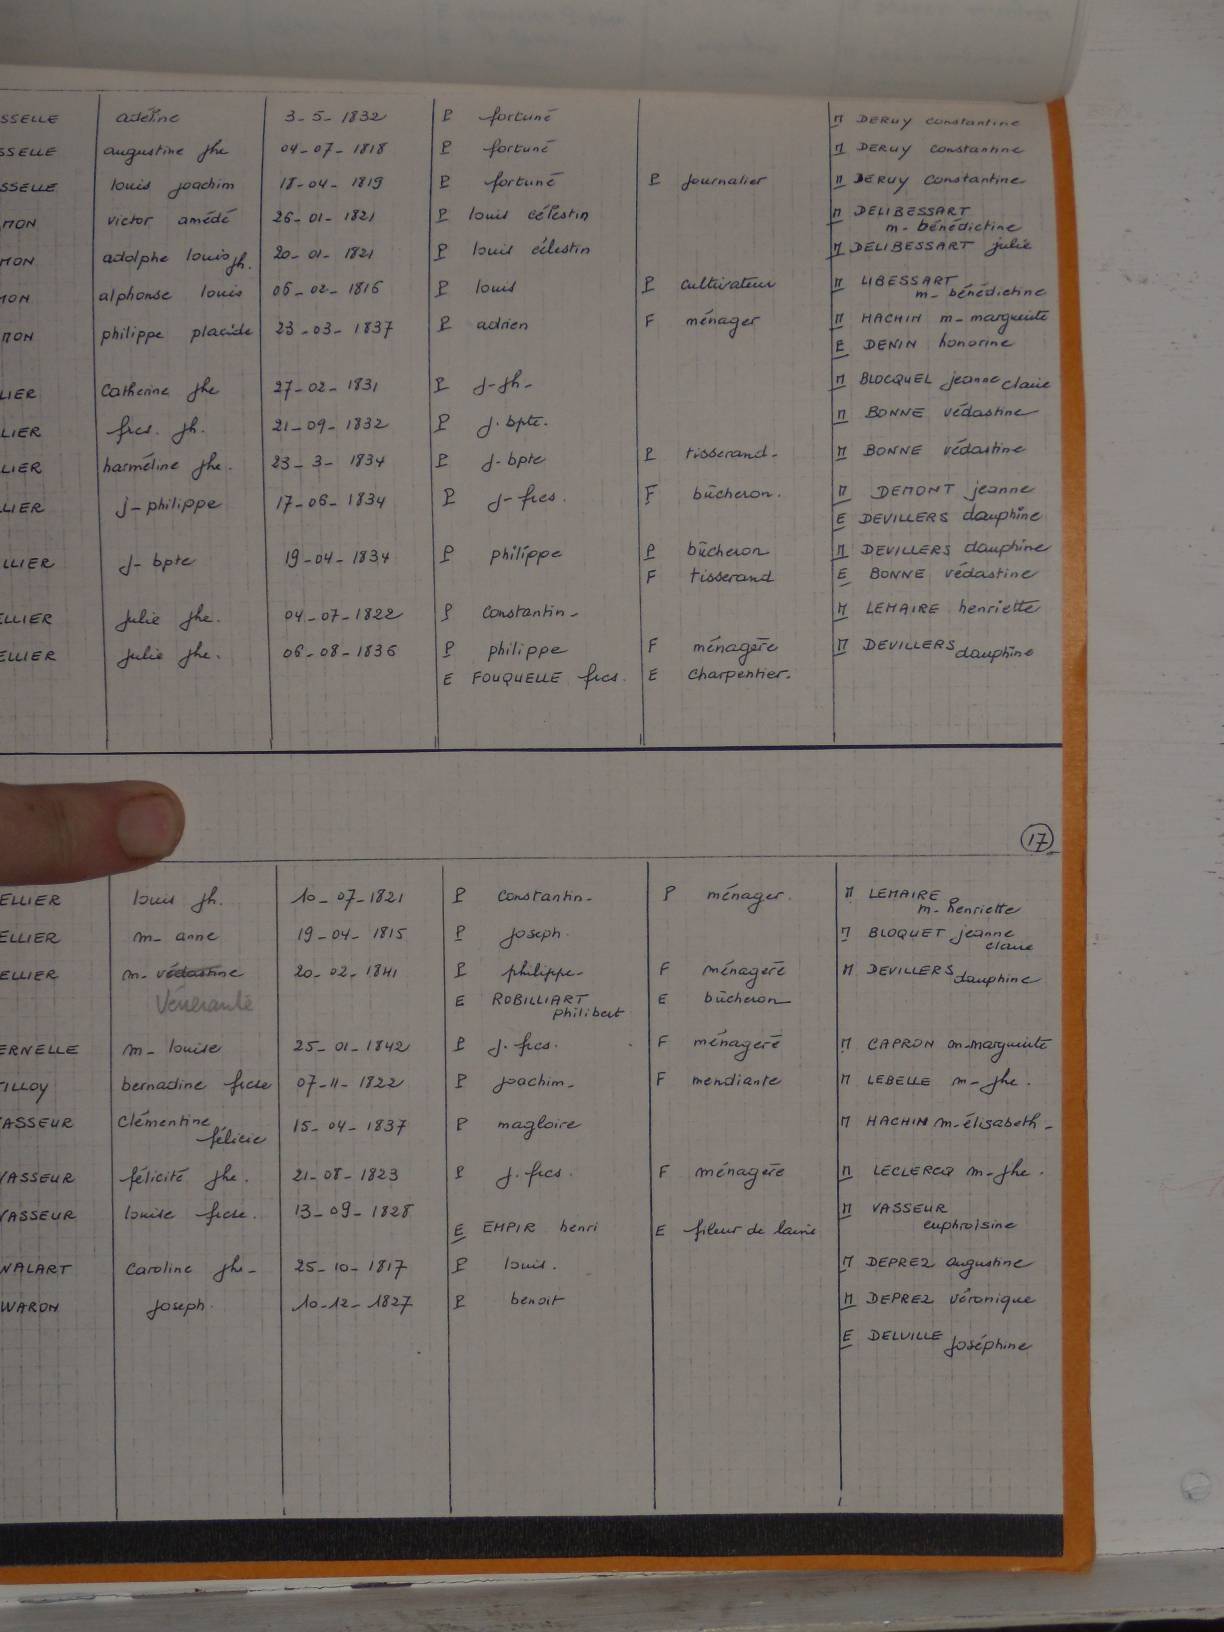 SSELLE adéline 3-5-1832 P fortuné M DERUY constantine
SSELLE augustine jhe 04-07-1818 P fortuné M DERUY constantine
SSELLE louis joachim 18-04-1819 P fortuné P journalier M DERUY constantine
MON victor amédé 26-01-1821 P louis célestin M DELIBESSART
m-bénédictine
MON adolphe louis jh. 20-01-1821 P louis célestin M DELIBESSART julie
MON alphonse louis 06-02-1816 P louis P cultivateur M LIBESSART
m-bénédictine
MON philippe placide 23-03-1837 P adrien F ménager M HACHIN m-marguerite
E DENIN honorine
LIER Catherine jhe 27-02-1831 P j-jh- M BLOCQUEL jeanne claire
LIER frcs. jh. 21-09-1832 P j.bpte. M BONNE védastine
LIER harméline jhe. 23-3-1834 P j-bpte P tisserand- M BONNE védastine
LIER j-philippe 17-06-1834 P j-frcs. F bûcheron. M DEMONT jeanne
E DEVILLERS dauphine
LLIER j-bpte 19-04-1834 P philippe P bûcheron M DEVILLERS dauphine
F tisserand E BONNE védastine
ELLIER julie jhe. 04-07-1822 P constantin- M LEMAIRE henriette
ELLIER julie jhe. 06-08-1836 P philippe F ménagère M DEVILLERS dauphine
E FOUQUELLE frcs. E charpentier.
17
ELLIER louis jh. 10-07-1821 P constantin- P ménager. M LEMAIRE
m-henriette
ELLIER m-anne 19-04-1815 P joseph. M BLOQUET jeanne
claire
ELLIER m-védastine 20-02-1841 P philippe- F ménageré M DEVILLERS dauphine
Vénérante E ROBILLIART E bûcheron
philibert
ERNELLE m-louise 25-01-1842 P j.frcs. F ménageré M CAPRON m-marguerite
TILLOY bernadine frcse 07-11-1822 P joachim- F mendiante M LEBELLE m-jhe.
ASSEUR Clémentine 15-04-1837 P magloire M HACHIN m-élisabeth-
félicie
VASSEUR félicité jhe. 21-08-1823 P j.frcs. F ménagère M LECLERCQ m-jhe.
VASSEUR louise frcse. 13-09-1828 M VASSEUR
E EMPIR henri E fileur de laine euphroisine
WALART Caroline jhe- 25-10-1817 P louis. M DEPREZ augustine
WARON joseph. 10-12-1827 P benoit M DEPREZ véronique
E DELVILLE joséphine